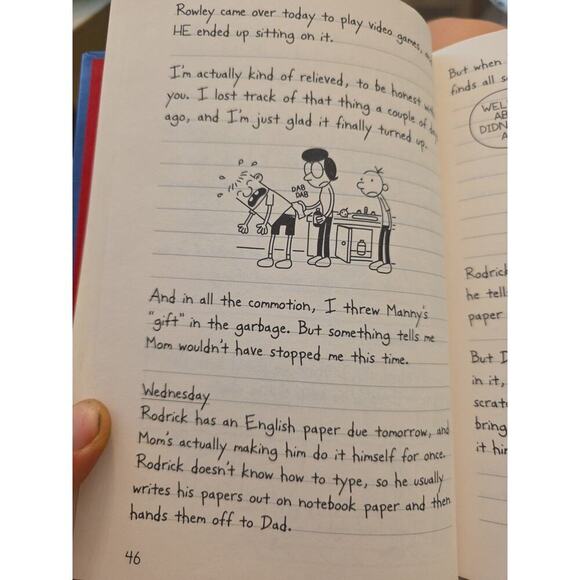 Rowley came over today to play video games,
HE ended up sitting on it.
I'm actually kind of relieved, to be honest with
you. I lost track of that thing a couple of days
ago, and I'm just glad it finally turned up.
DAB
DAB
And in all the commotion, I threw Manny's
"gift" in the garbage. But something tells me
Mom wouldn't have stopped me this time.
Wednesday
Rodrick has an English paper due tomorrow, and
Mom's actually making him do it himself for once.
Rodrick doesn't know how to type, so he usually
writes his papers out on notebook paper and then
hands them off to Dad.
46
But when
finds all
WEL
AB
DIDN
A
Rodrick
he tell
paper
But I
in it,
scrat
bring
it hi